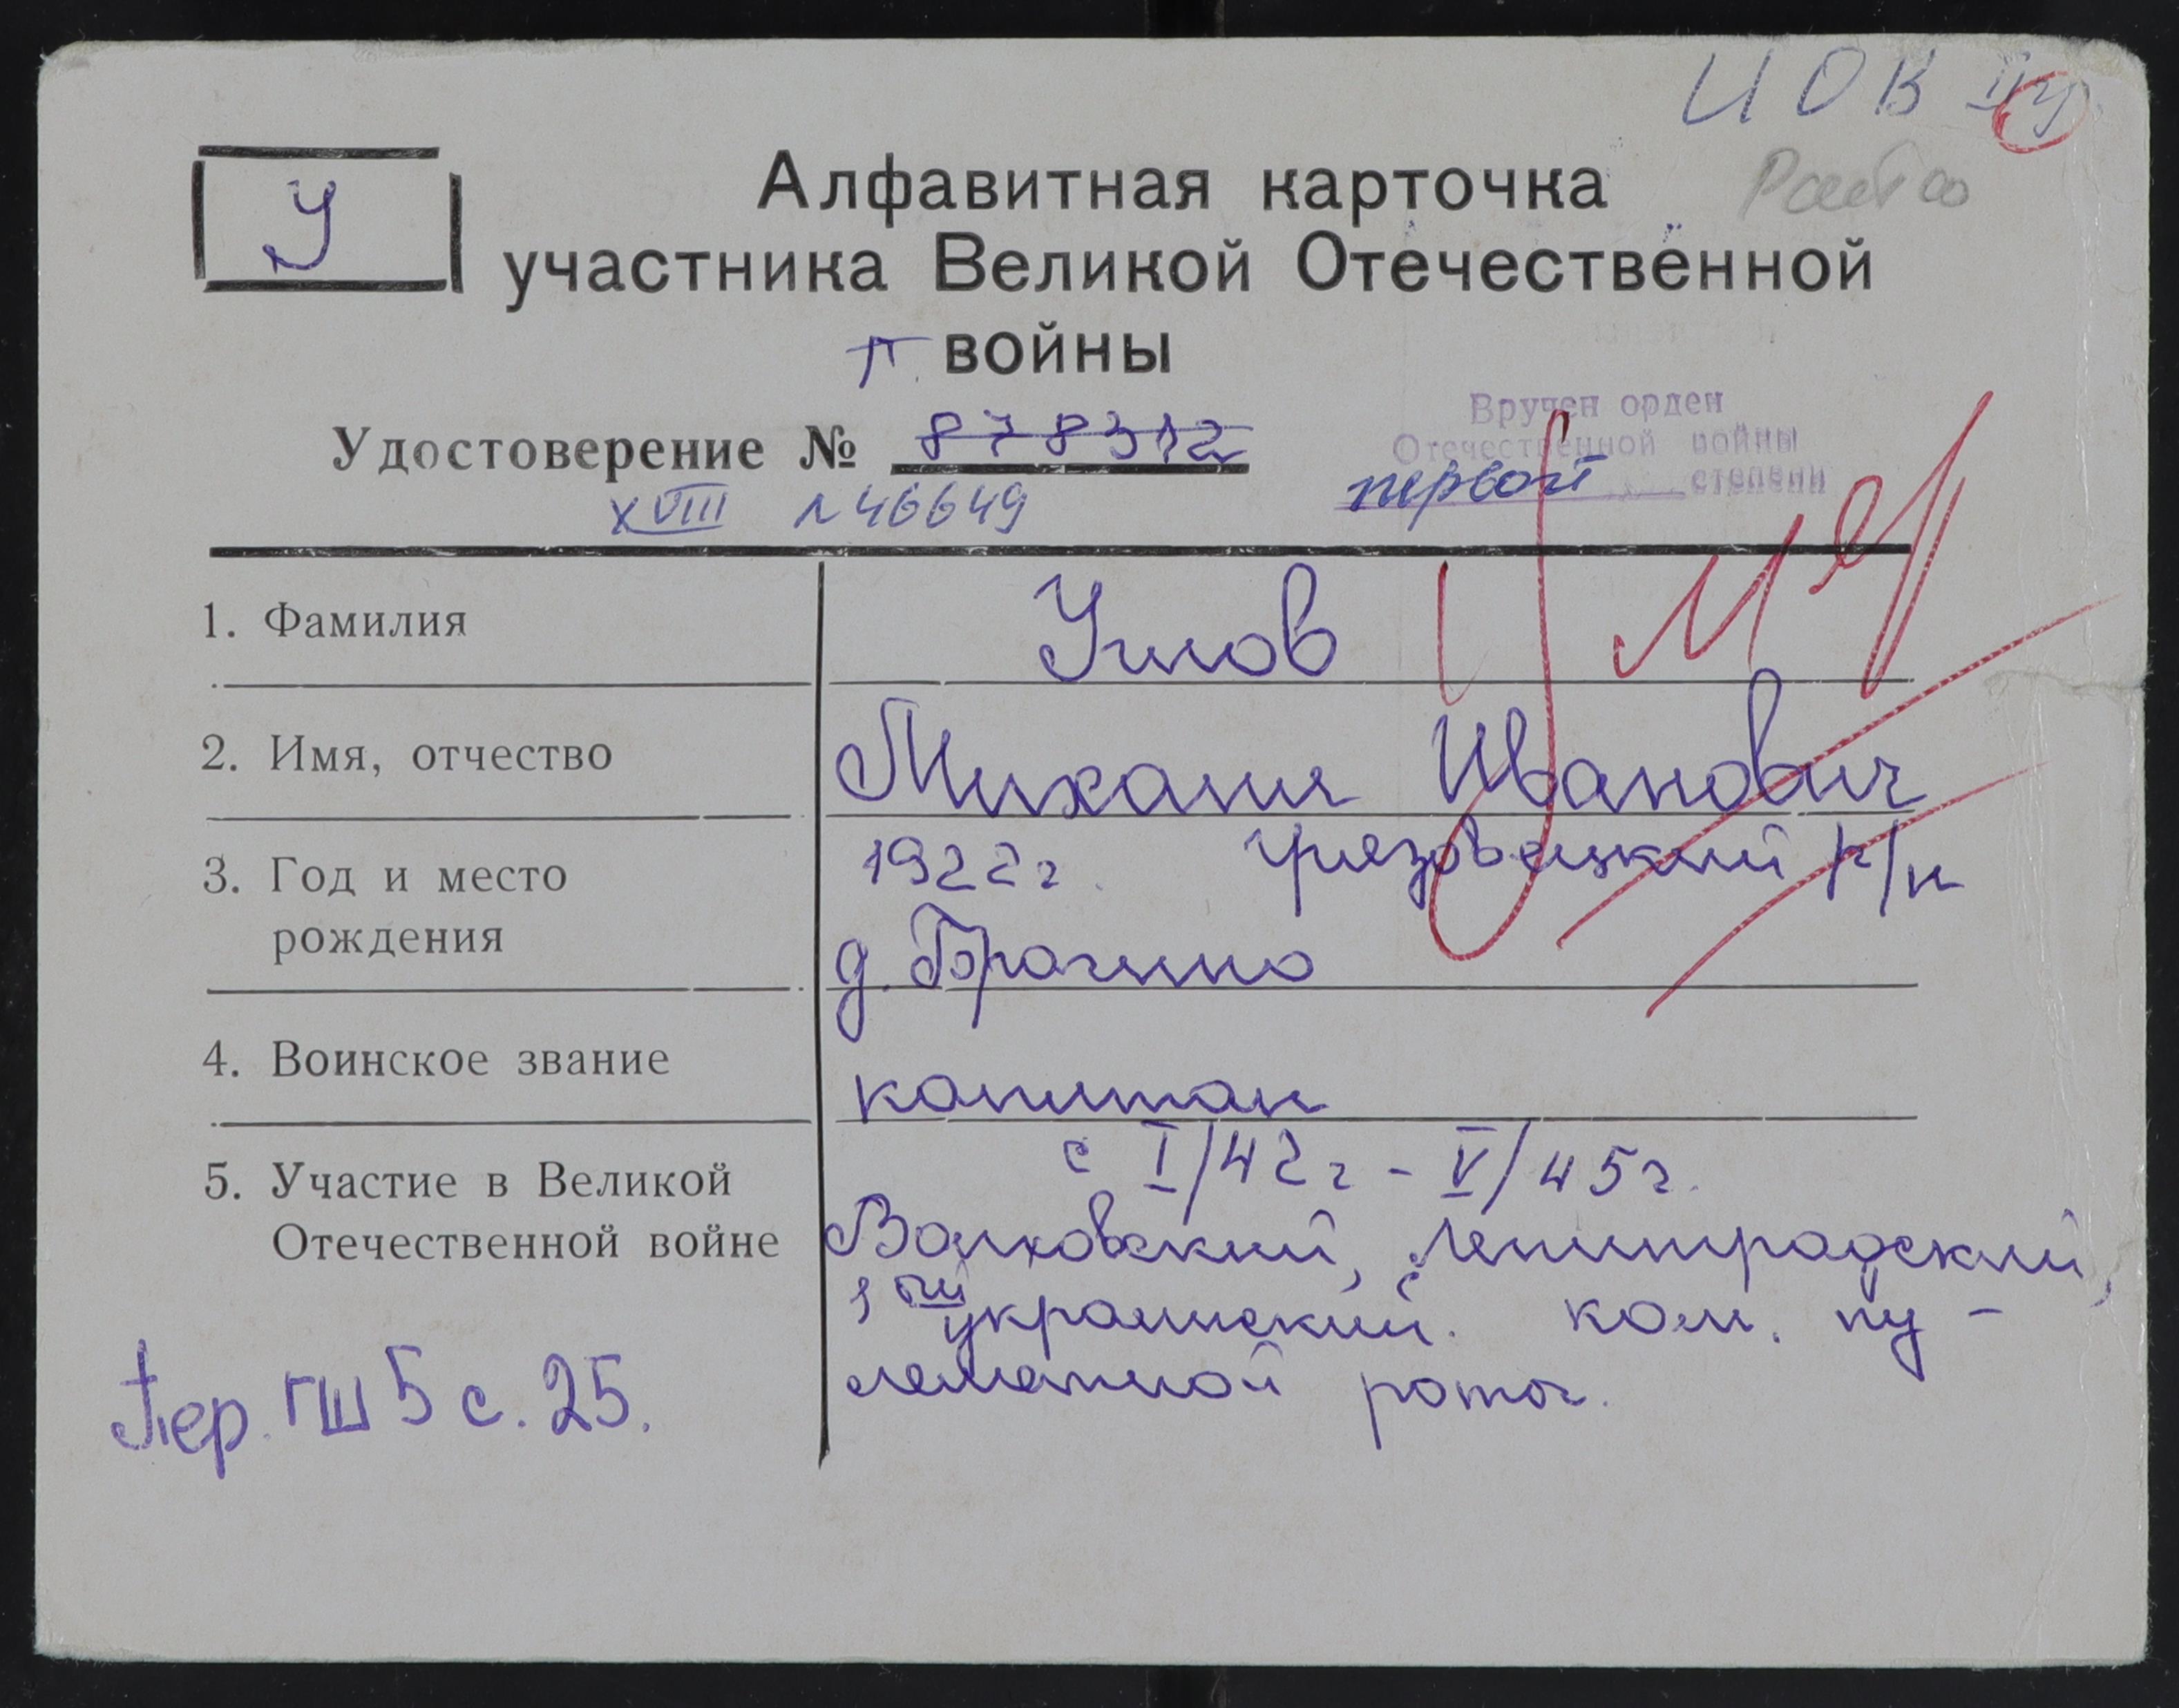 ИОВ II гр.
У
Алфавитная карточка
участника Великой Отечественной
П войны
Вручен орден
Отечественной войны
первой степени
Удостоверение № 878312
XVIII № 466649
Умер
1. Фамилия Углов
2. Имя, отчество Михаил Иванович
3. Год и место 1922г. Грязовецкий р/н
рождения д. Брагино
4. Воинское звание капитан
5. Участие в Великой с I/42г - V/45г.
Отечественной войне Волховский, Ленинградский,
1ый украинский. ком. пу-
леметной роты.
Пер. ГШ 5 с. 25.